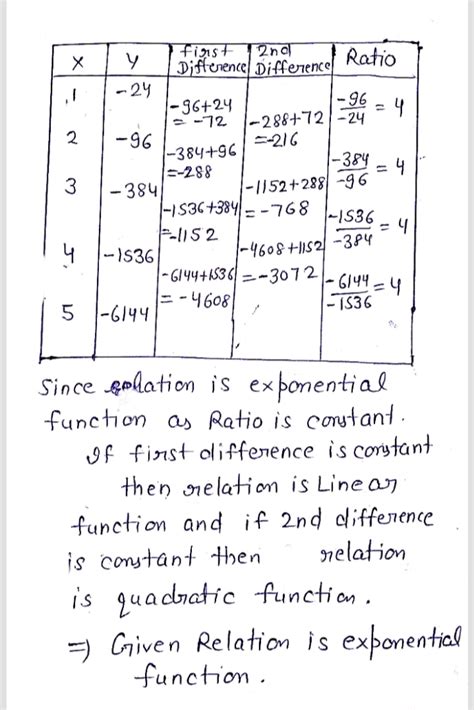 X y First Difference 2nd Difference Ratio
1 -24
-96+24 = -72
-96/-24 = 4
-288+72 =-216
2 -96
-384+96 =-288
-384/-96 = 4
3 -384
-1152+288 = -768
-1536+384 =-1152
-1536/-384 = 4
4 -1536
-4608+1152 = -3072
-6144+1536 = -4608
-6144/-1536 = 4
5 -6144
Since relation is exponential
function as Ratio is constant.
If first difference is constant
then relation is Linear
function and if 2nd difference
is constant then relation
is quadratic function.
=) Given Relation is exponential
function.